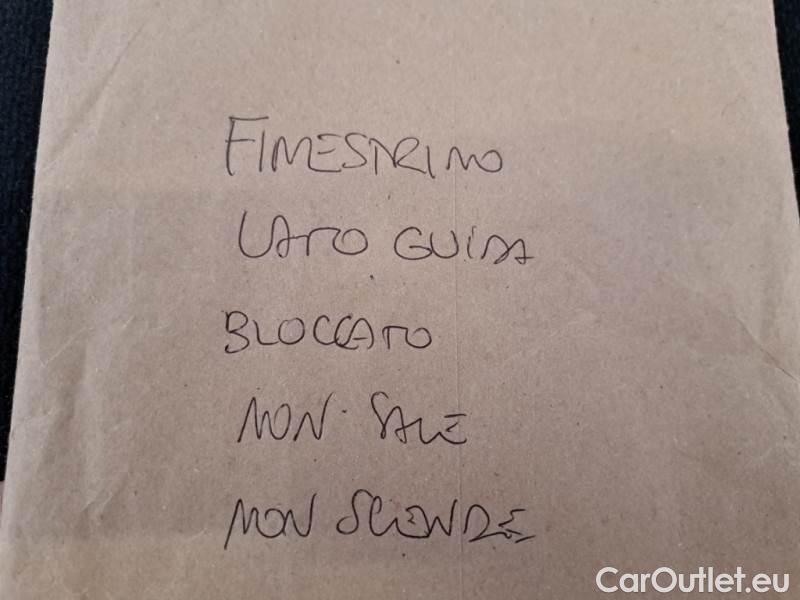 FINESTRINO
LATO GUIDA
BLOCCATO
NON SALE
NON SCENDE
CarOutlet.eu